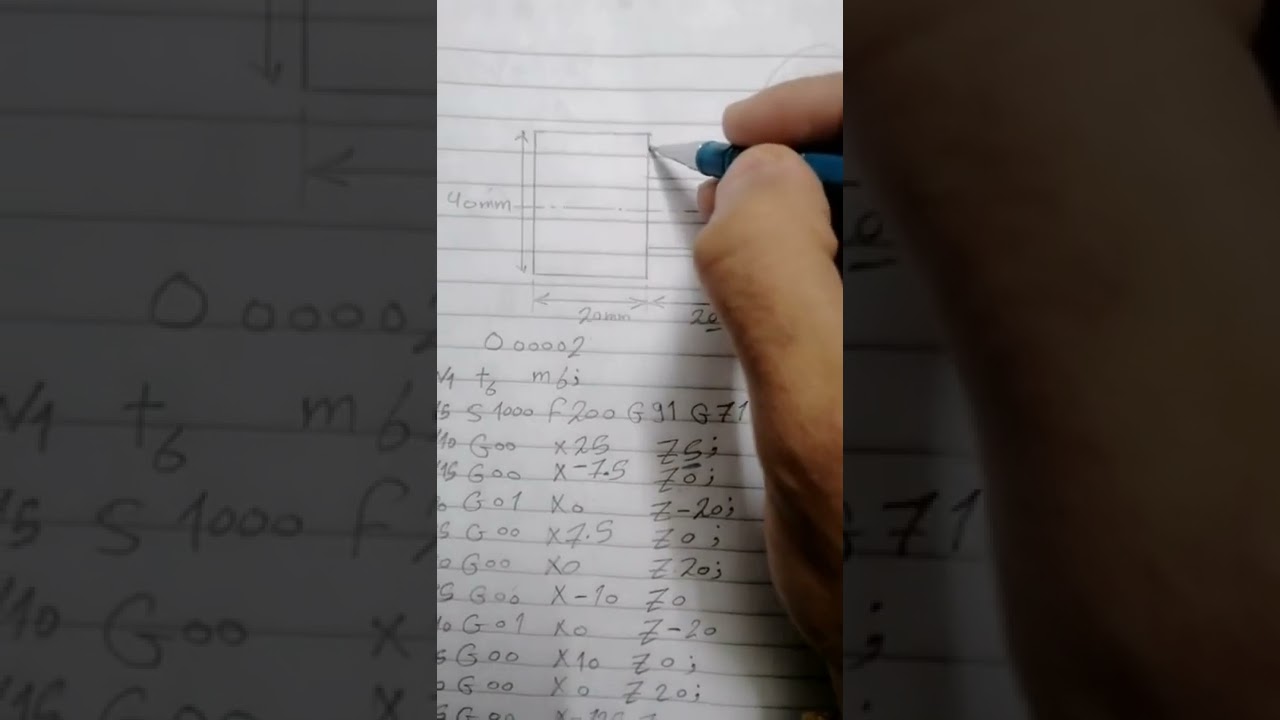 40mm
20mm 20
O 00002
N1 t6 m6;
N5 S1000 f200 G91 G71
N10 G00 X25 Z5;
N15 G00 X-7.5 Z0;
G01 X0 Z-20;
G00 X7.5 Z0;
G00 X0 Z20;
G00 X-10 Z0
G01 X0 Z-20
G00 X10 Z0;
G00 X0 Z20;
G00